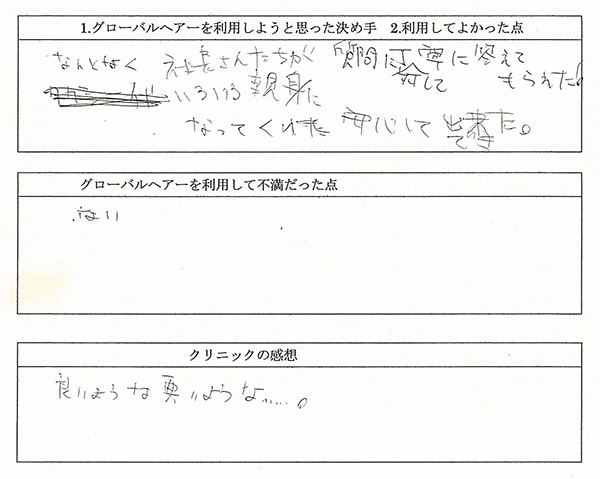 1.グローバルヘアーを利用しようと思った決め手　2.利用してよかった点
なんとなく 社長さんたちが 質問に丁寧に答えて
いろいろ親身に 対して もらえた!
なってくれた 安心して 出来た。
グローバルヘアーを利用して不満だった点
ない
クリニックの感想
良いような悪いような……。